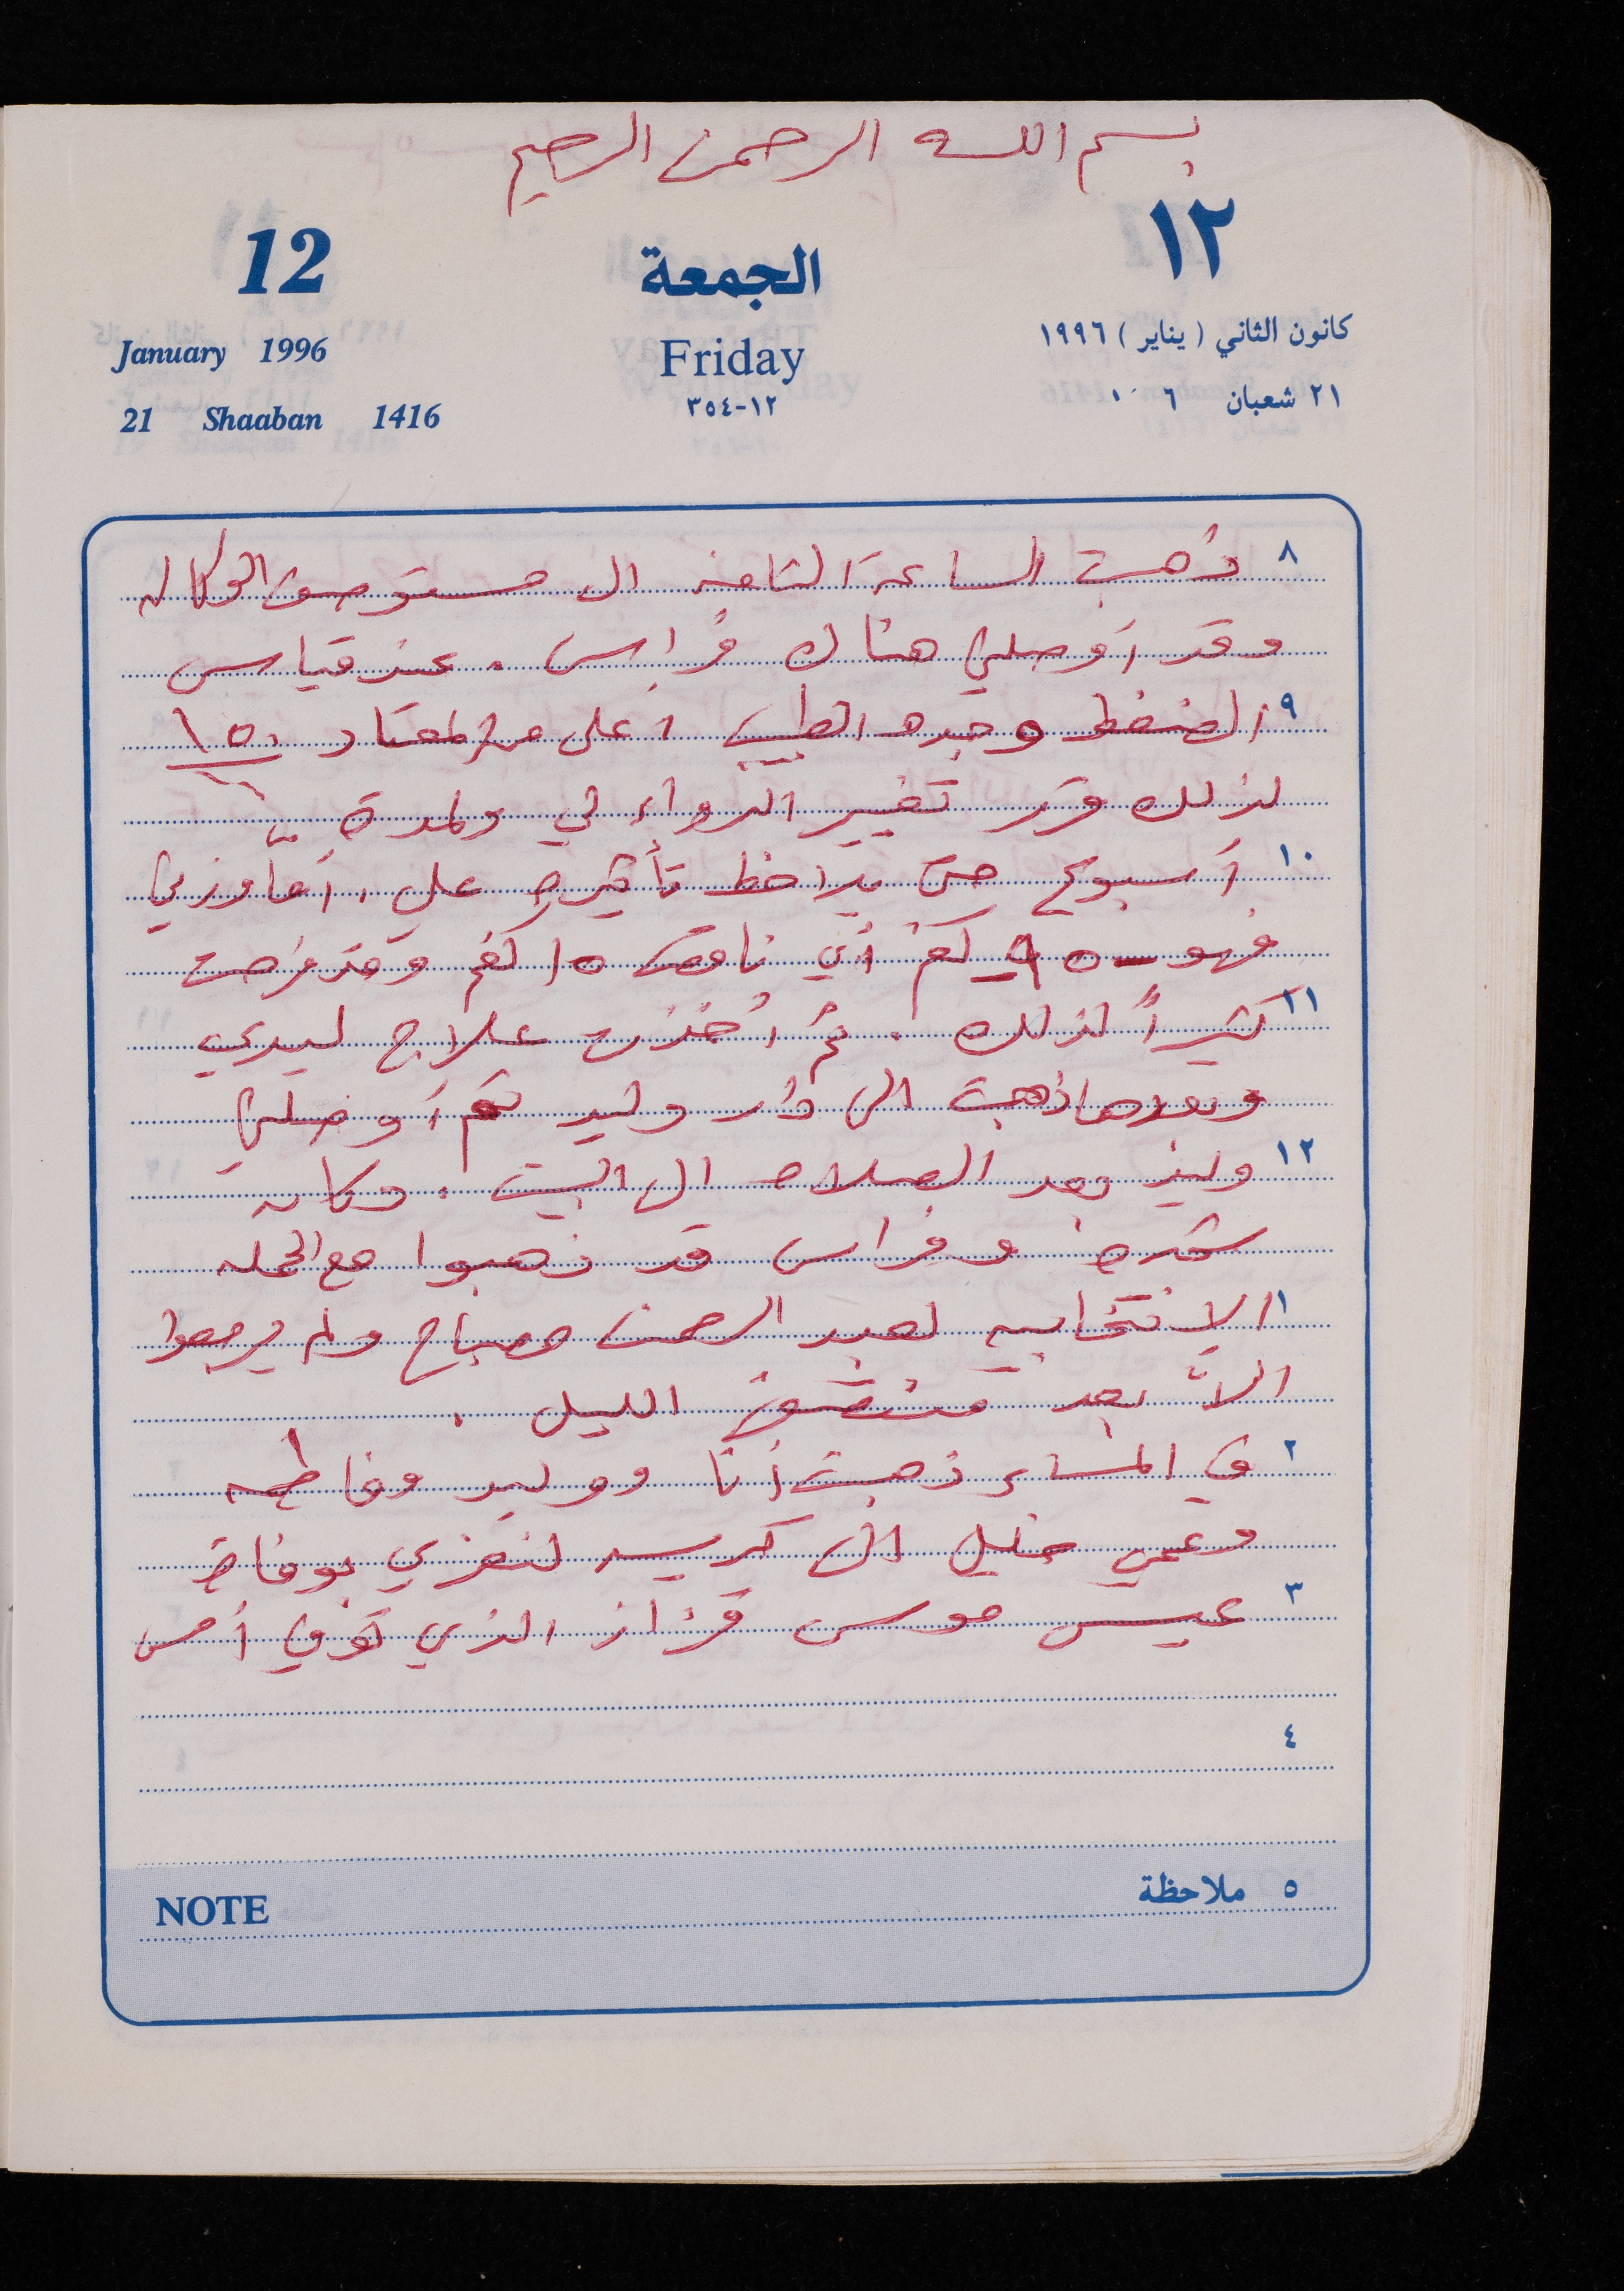 بسم الله الرحمن الرحيم
12 الجمعة ١٢
January 1996 Friday كانون الثاني ( يناير ) ١٩٩٦
21 Shaaban 1416 ١٢-٣٥٤ ٢١ شعبان ٦
٨ ذهبت الساعة الثامنه الى مستوصف الوكاله
وقد أوصلني هناك فراس . عند قياس
٩ الضغط وجده الطبيب أعلى من المعتاد ١٥٠
لذلك قرر تغيير الدواء لي ولمدة
١٠ أسبوع حتى يلاحظ تأثيره علي ، أما وزني
فهو ٩٥ كغم أي ناقص ١٥ كغم وقد فرحت
١١ كثيراً لذلك . ثم أخذت علاج ليدي
وبعدها ذهبت الى دار وليد ثم أوصلني
١٢ وليد بعد الصلاه الى البيت . وكان
وفراس قد ذهبوا مع الحمله
١ الانتخابيه لعبد الرحمن صباح ولم يرجعوا
الاّ بعد منتصف الليل .
٢ في المساء ذهبت أنا ووليد وفاطمه
وعمي خليل الى كريسه لنعزي بوفاة
٣ عيسى موسى قزاز الذي توفي أمس
٤
NOTE ٥ ملاحظة